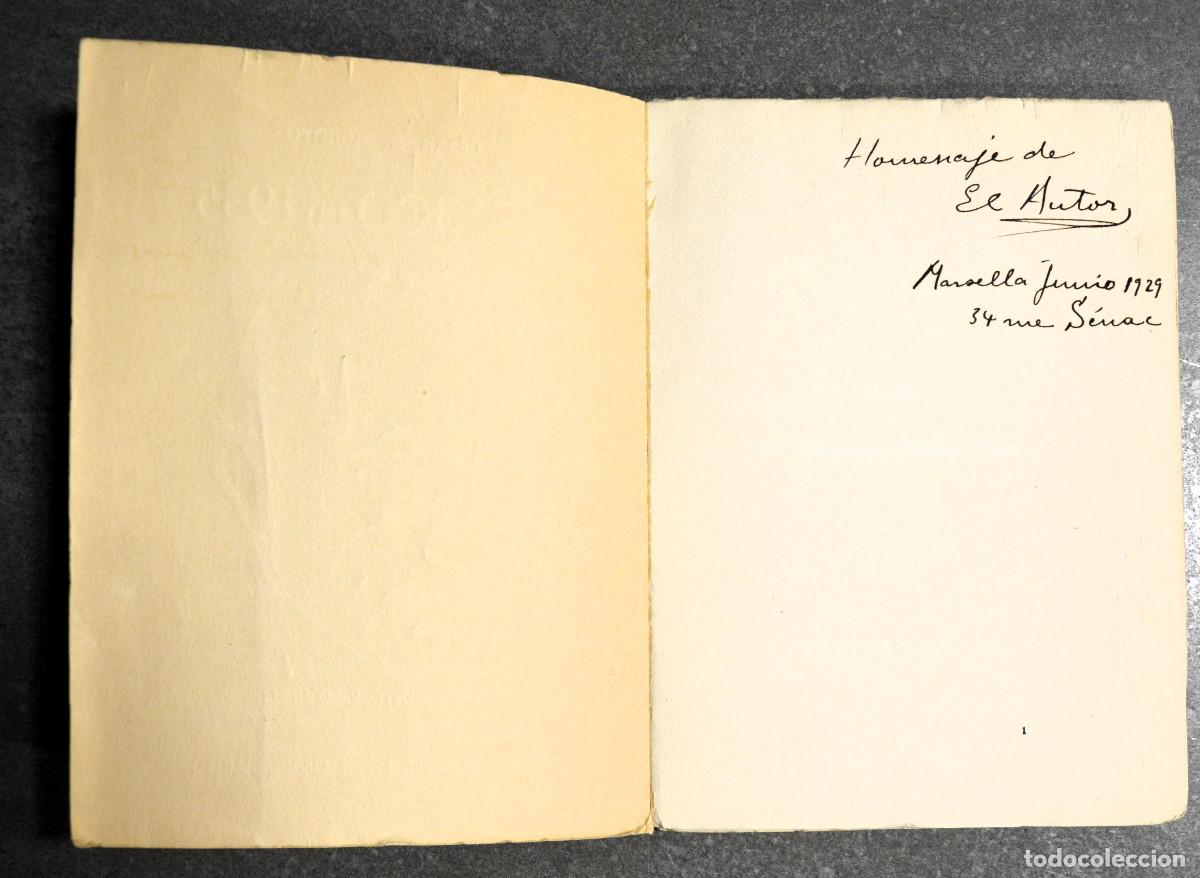 Homenaje de
El Autor
Marsella Junio 1929
34 rue Sénac
1
todocoleccion